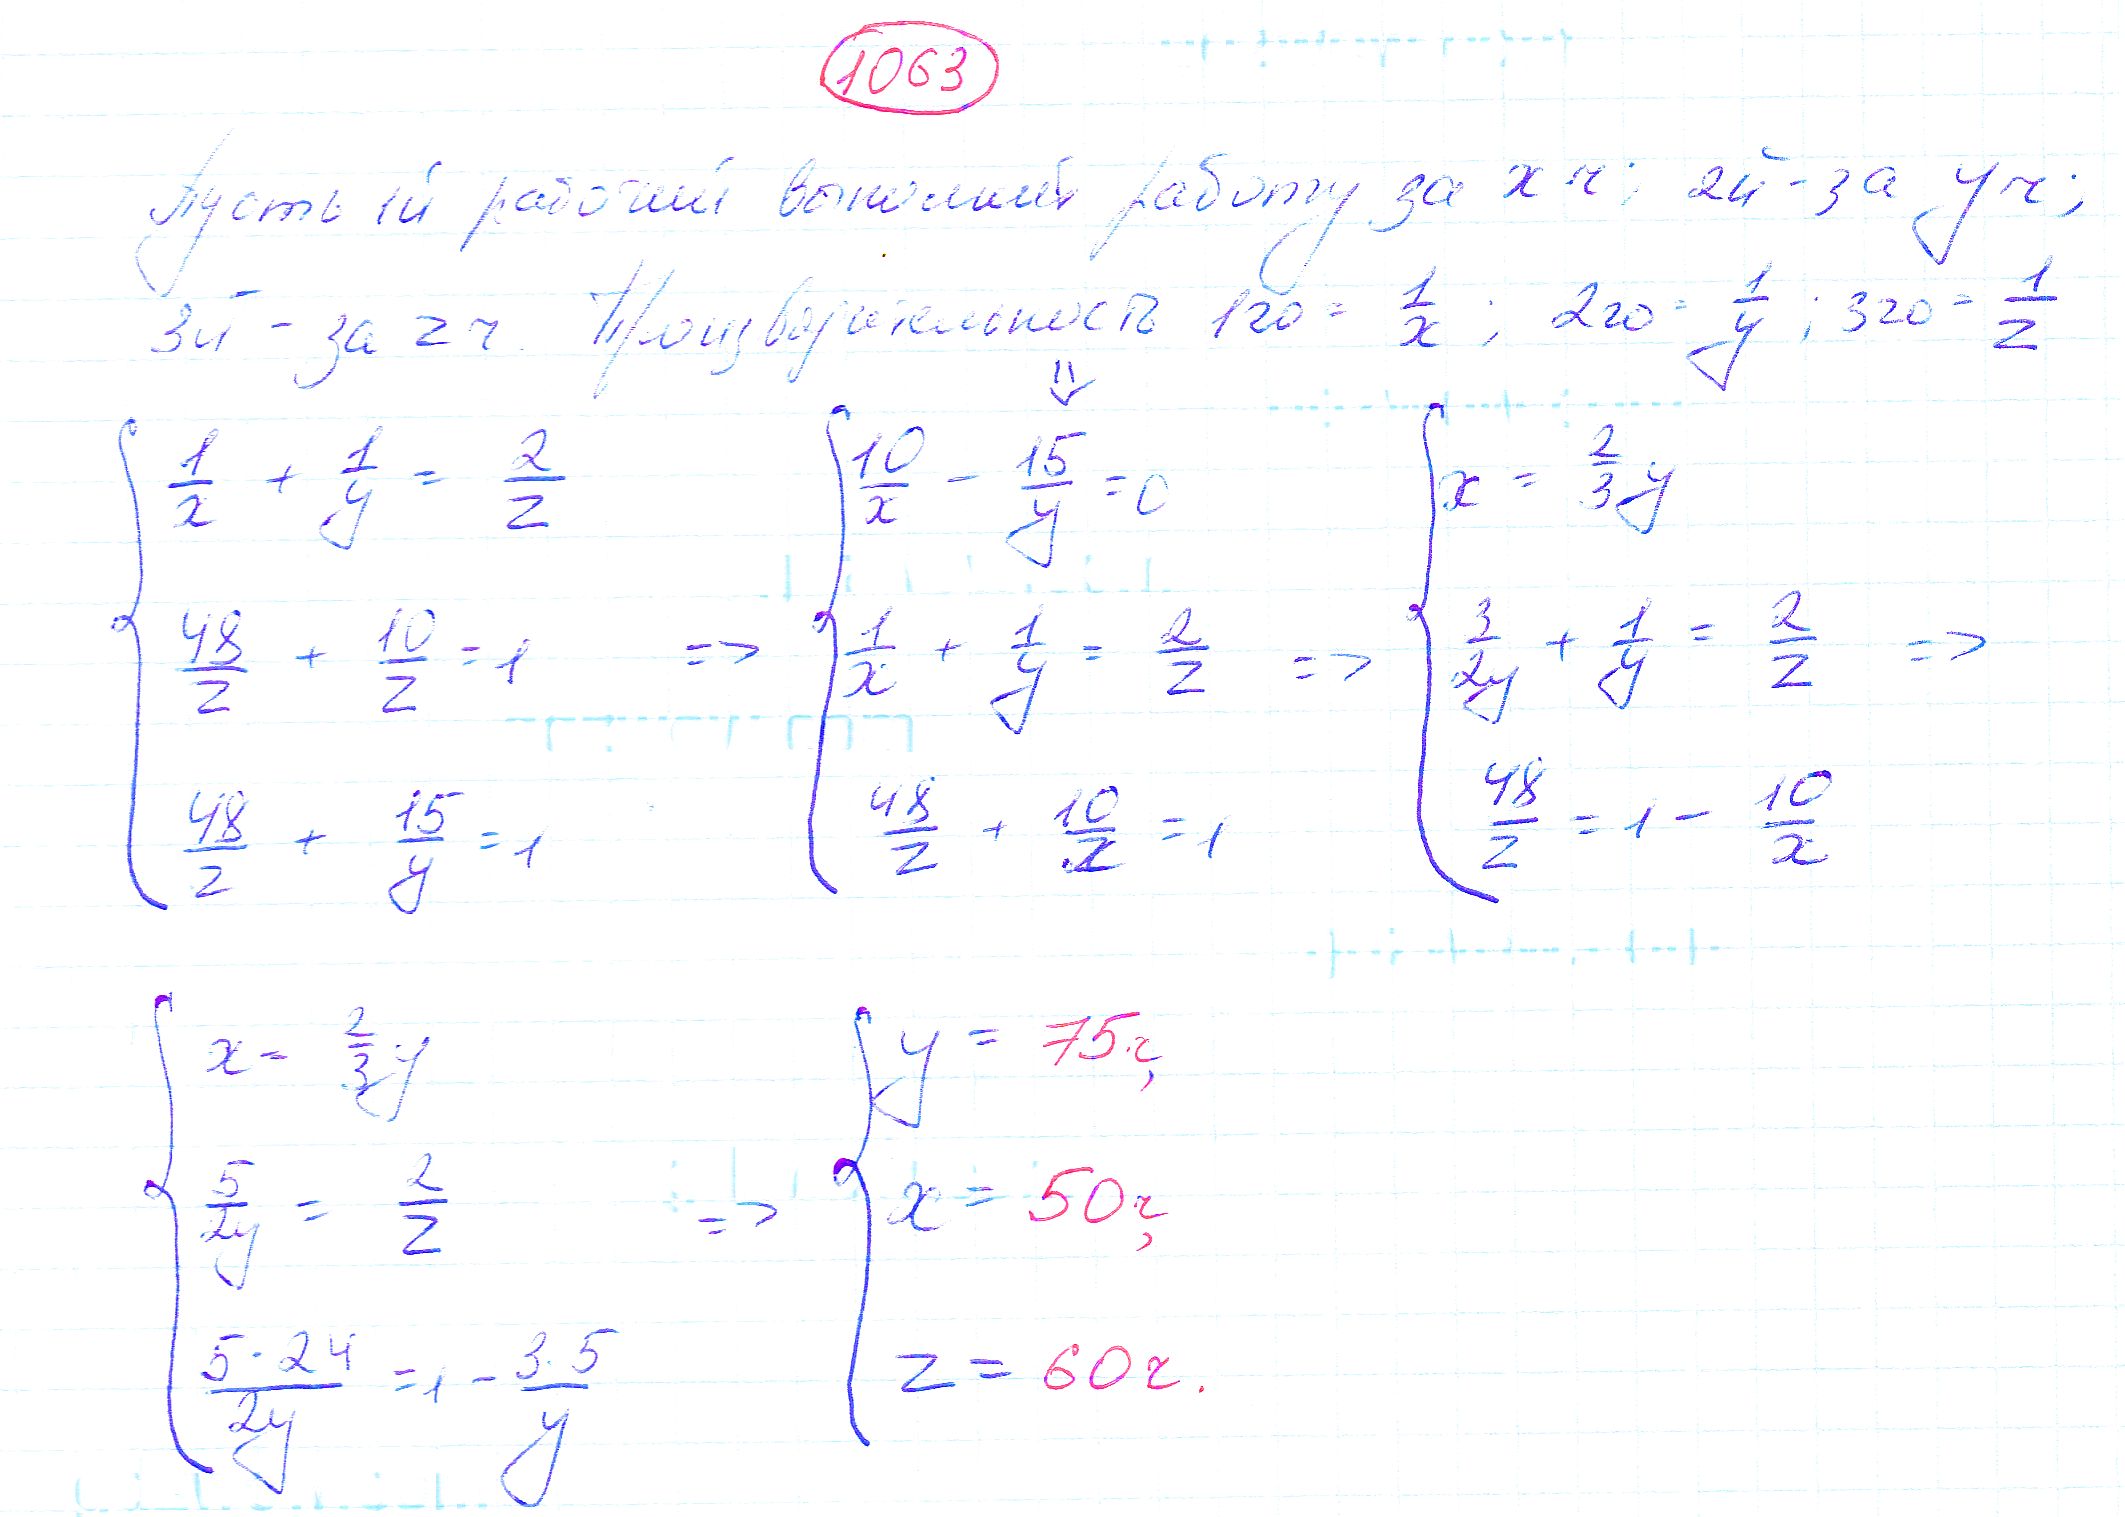 1063
Пусть 1й рабочий выполнит работу за x ч; 2й - за y ч;
3й - за z ч. Производительность 1го = 1/x ; 2го = 1/y ; 3го = 1/z
⇓
1/x + 1/y = 2/z
48/z + 10/z = 1 =>
48/z + 15/y = 1
10/x - 15/y = 0
1/x + 1/y = 2/z =>
48/z + 10/x = 1
x = 2/3 y
3/2y + 1/y = 2/z =>
48/z = 1 - 10/x
x = 2/3 y
5/2y = 2/z =>
5·24/2y = 1 - 3·5/y
y = 75 ч,
x = 50 ч,
z = 60 ч.